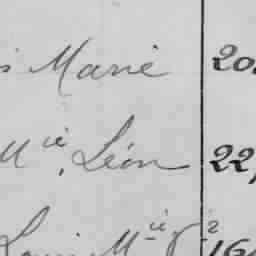 s Marie 20
Mie, Léon 22
Louis Mie 2 16